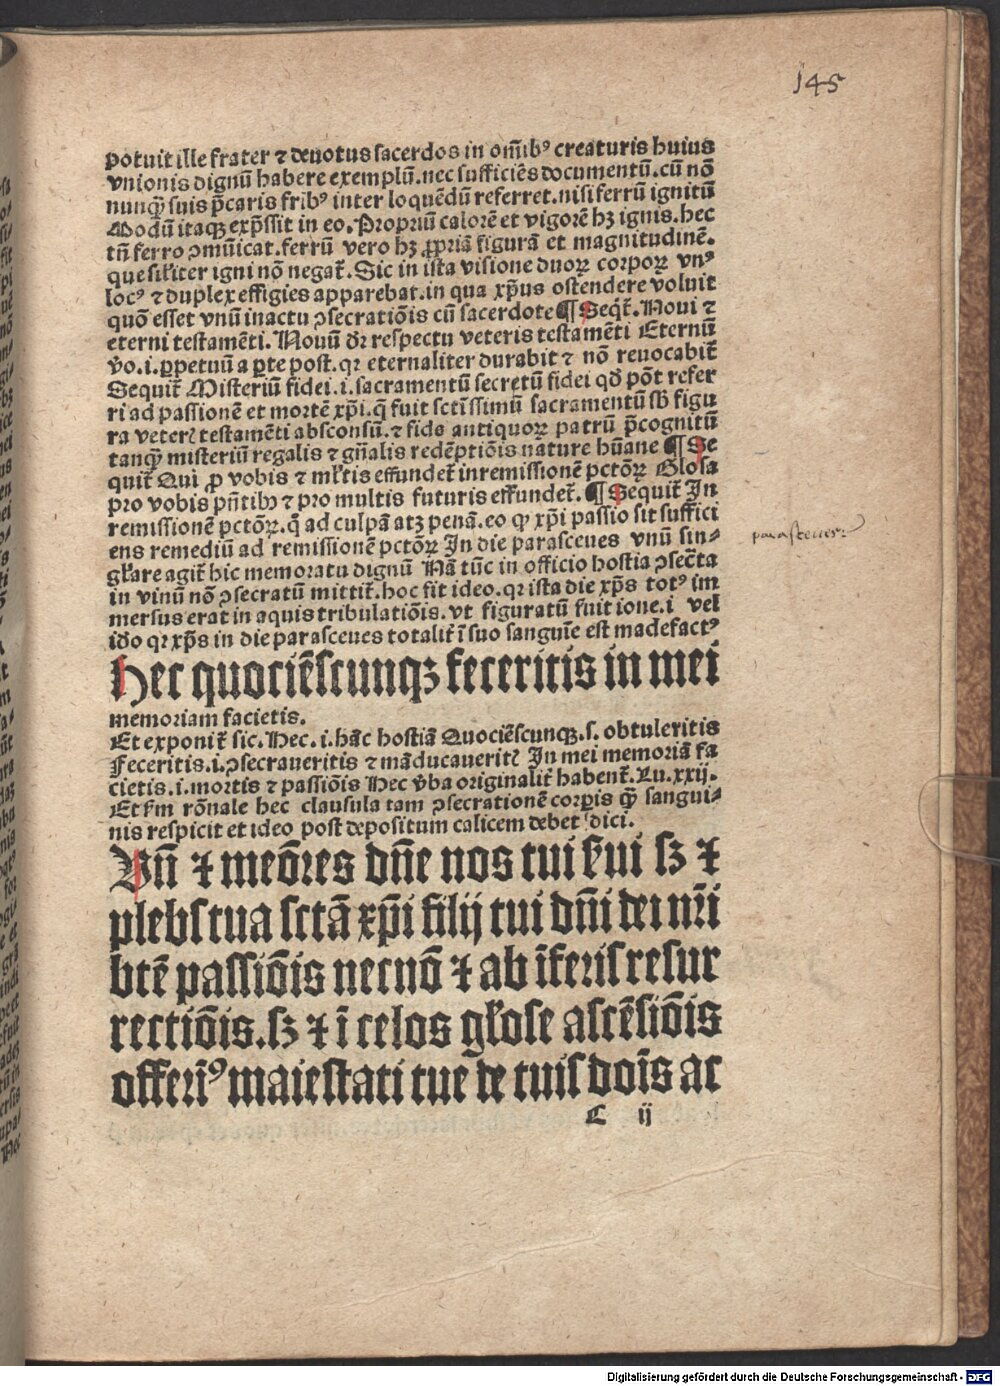 145
potuit ille frater ⁊ deuotus sacerdos in om̄ibꝰ creaturis huius
vnionis dignū habere exemplū. nec sufficiēs documentū. cū nō
nunqꝫ suis p̄caris fribꝰ inter loquēdū referret. nisi ferrū ignitū
Modū itaqꝫ exp̄ssit in eo. Propriū calorē et vigorē hꝫ ignis. hec
tn̄ ferro ꝯmūicat. ferrū vero hꝫ ꝓpriā figurā et magnitudinē.
que sił̄iter igni nō negat̄. Sic in ista visione duoꝝ corpoꝝ vnꝰ
locꝰ ⁊ duplex effigies apparebat. in qua xp̄us ostendere voluit
quō esset vnū in actu ꝯsecratiōis cū sacerdote ¶ Seqt̄. Noui ⁊
eterni testamēti. Nouū dr̄ respectu veteris testamēti Eternū
v̄o. i. ꝑpetuū a ꝑte post. qꝛ eternaliter durabit ⁊ nō reuocabit̄
Sequit̄ Misteriū fidei. i. sacramentū secretū fidei qd̄ pōt refer
ri ad passionē et mortē xp̄i. q̄ fuit sct̄issimū sacramentū sb̄ figu
ra veterꝭ testamēti absconsū. ⁊ fide antiquoꝝ patrū p̄cognitū
tanqꝫ misteriū regalis ⁊ gn̄alis redēptiōis nature hūane ¶ Se
quit̄ Qui ꝓ vobis ⁊ mł̄tis effundet̄ in remissionē pctōꝝ Glosa
pro vobis pn̄tibꝫ ⁊ pro multis futuris effundet̄. ¶ Sequit̄ In
remissionē pctōꝝ. q̄ ad culpā atqꝫ penā. eo ꝙ xp̄i passio sit suffici
ens remediū ad remissionē pctōꝝ In die parasceues vnū sin⸗
parasceues
gł̄are agit̄ hic memoratu dignū Nā tūc in officio hostia ꝯsec̄ta
in vinū nō ꝯsecratū mittit̄. hoc fit ideo. qꝛ ista die xp̄s totꝰ im
mersus erat in aquis tribulatiōis. vt figuratū fuit ione. i vel
iđo qꝛ xp̄s in die parasceues totalit̄ ī suo sanguīe est madefactꝰ
Hec quociēscunqꝫ feceritis in mei
memoriam facietis.
Et exponit̄ sic. Hec. i. hāc hostiā Quociēscunqꝫ. s. obtuleritis
Feceritis. i. ꝯsecraueritis ⁊ māducaueritꝭ In mei memoriā fa
cietis. i. mortis ⁊ passiōis Hec v̄ba originalit̄ habent̄. Lu. xxij.
Et ẜm rōnale hec clausula tam ꝯsecrationē corꝑis qꝫ sangui⸗
nis respicit et ideo post depositum calicem debet dici.
Vn̄ ⁊ meōres dn̄e nos tui ẜui sꝫ ⁊
plebs tua sctā xp̄i filij tui dn̄i dei nr̄i
btē passiōis necnō ⁊ ab īferis resur
rectiōis. sꝫ ⁊ ī celos gł̄ose ascēsiōis
offerīꝰ maiestati tue de tuis doīs ac
C ij
Digitalisierung gefördert durch die Deutsche Forschungsgemeinschaft - DFG